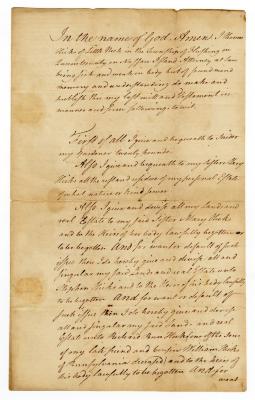 In the name of God. Amen. I Thomas
Hicks of Little Neck in the Township of Flushing in
Queens County on Nassau Island Attorney at Law
being sick and weak in body but of sound mind
memory and understanding do make and
publish this my last will and Testament in
manner and form following, to wit,
First of all I give and bequeath to Isidor
my Gardener twenty pounds
Also I give and bequeath my Sister Mary
Hicks all the rest and residue of my personal Estate
of what nature or kind soever
Also I give and devise all my Lands and
real Estate to my said Sister Mary Hicks
and to the Heirs of her body lawfully begotten or
to be begotten And for want or default of such
issue then I do hereby give and devise all and
singular my said Lands and real Estate unto
Stephen Hicks and to the Heirs of his body lawfully
to be begotten And for want or default of
such issue then I do hereby give and devise
all and singular my said Land and real
Estate unto Richard Penn Hicks one of the Sons
of my late friend and William Hicks
of Pennsylvania deceased and to the Heirs of
his body lawfully to be begotten And for
want